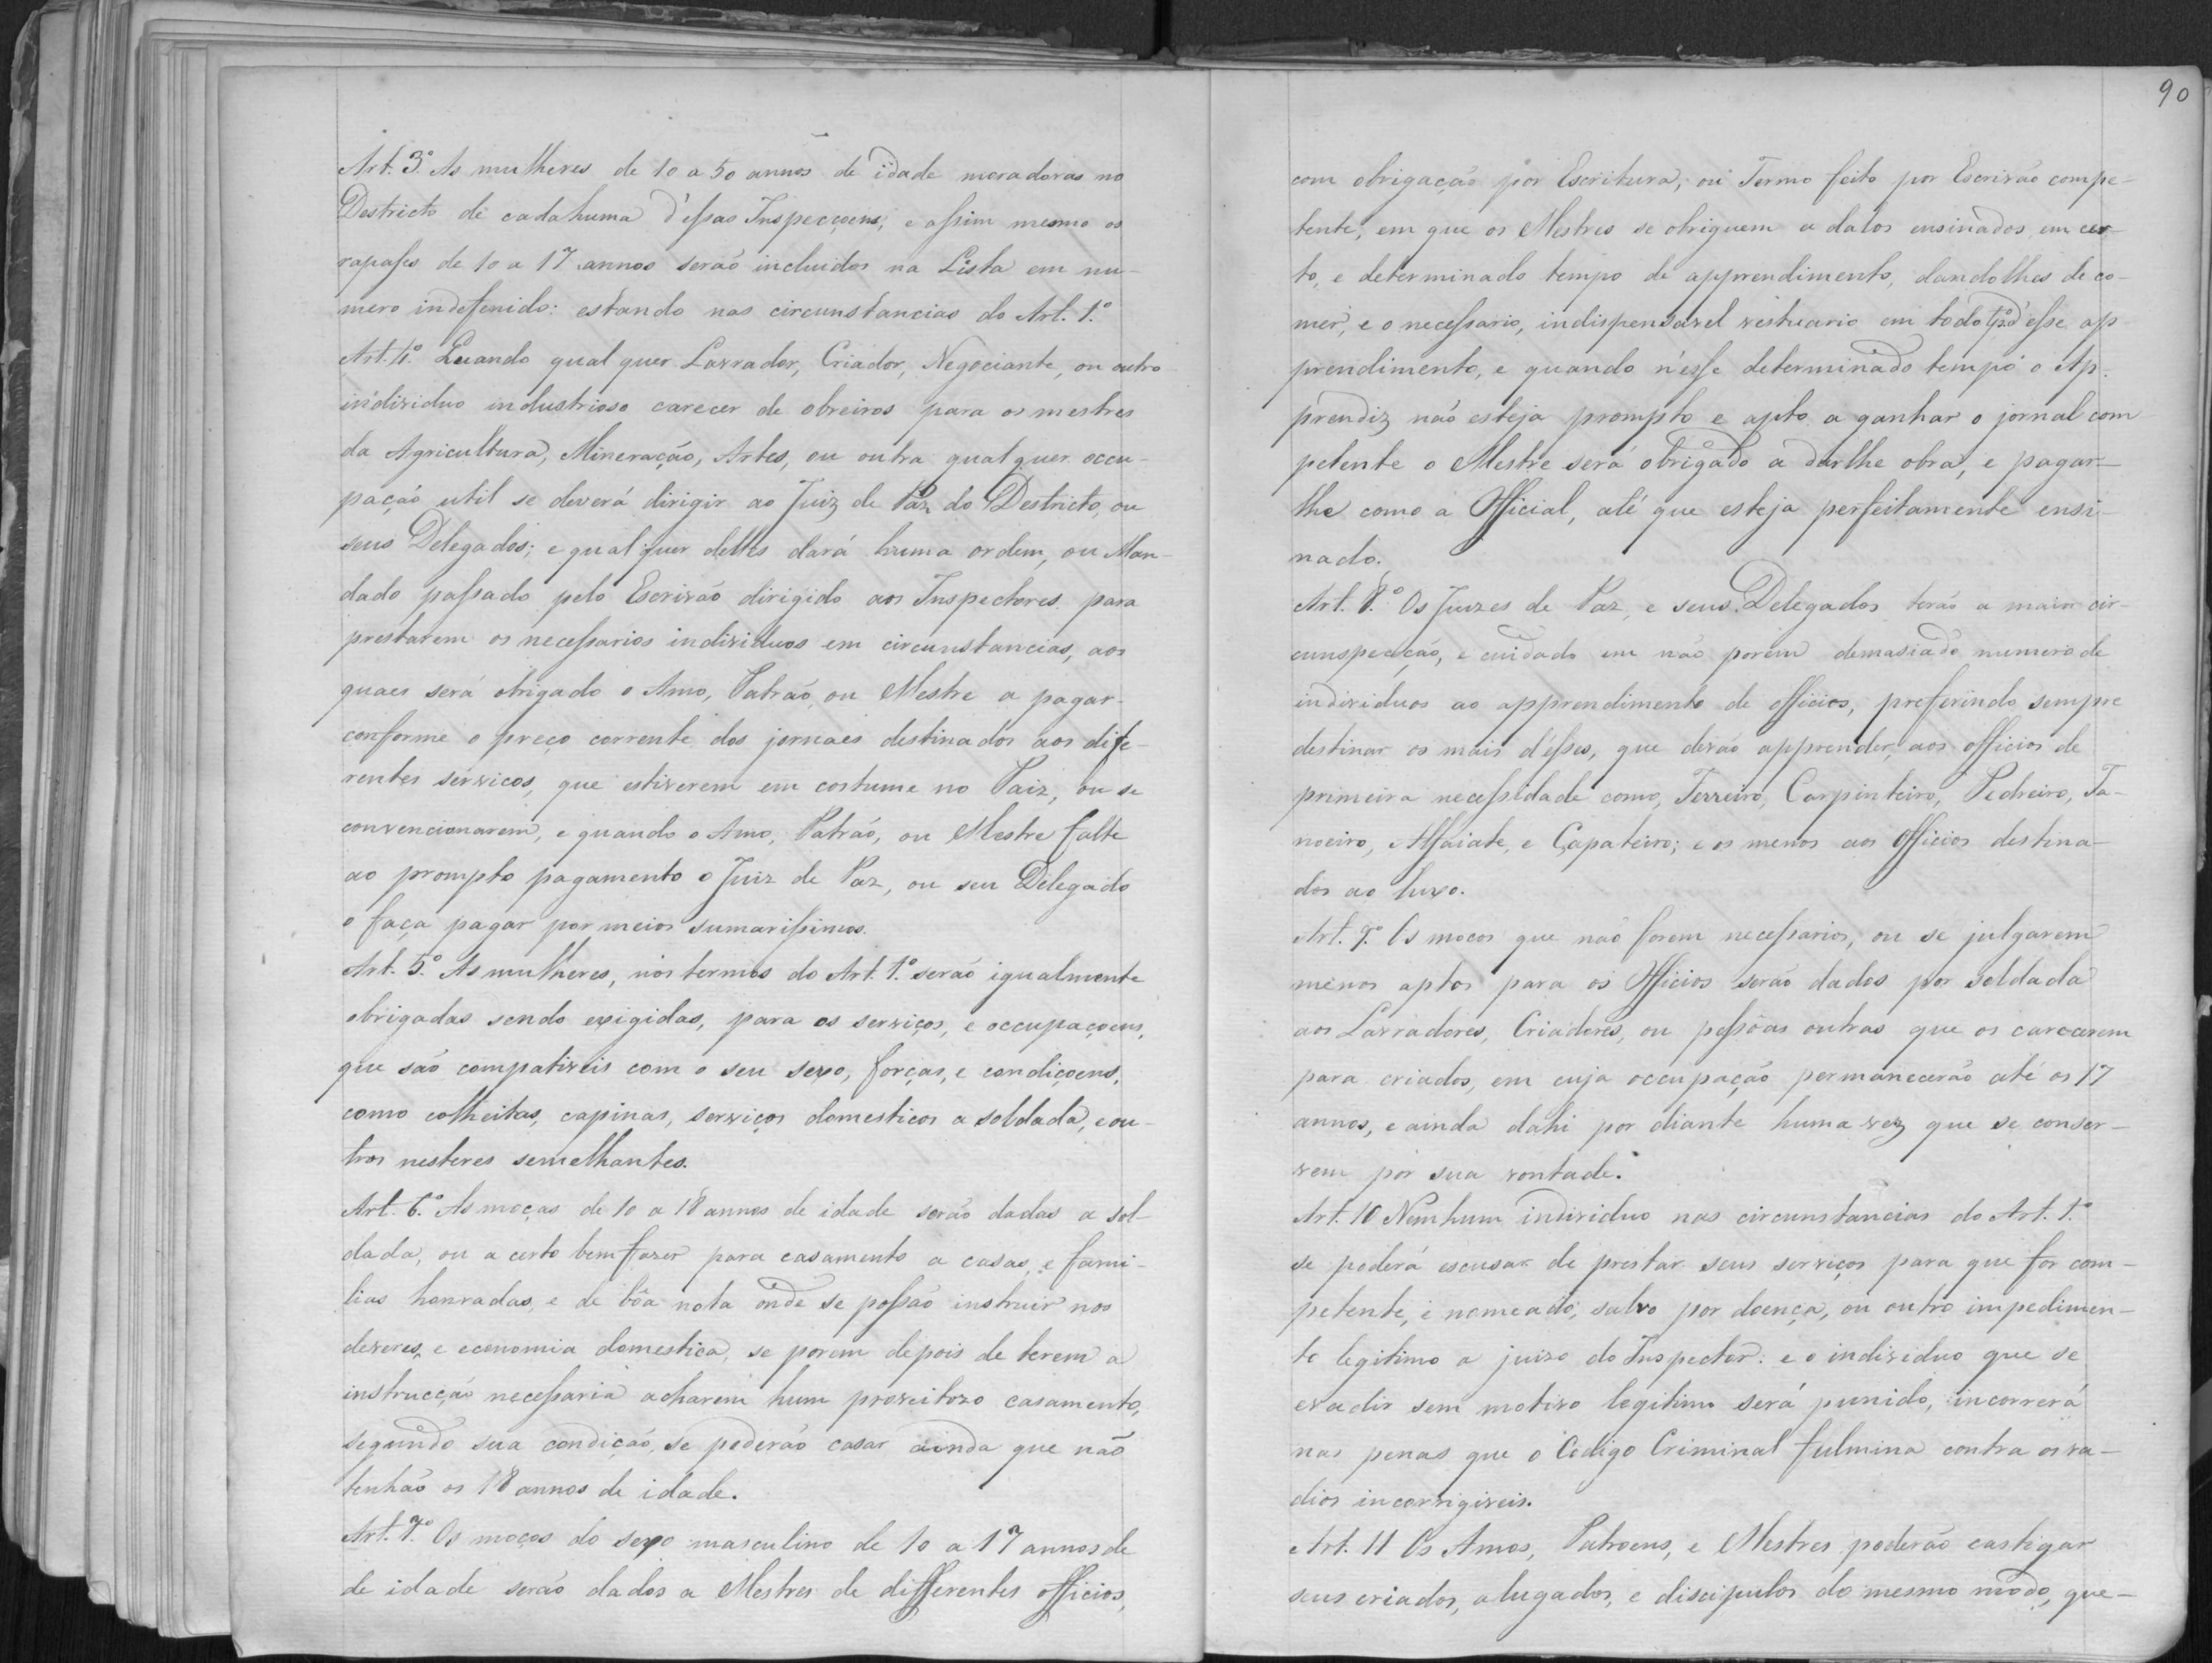 Art. 3.º As mulheres de 10 a 50 annos de idade moradoras no
Destricto de cada huma d'essas Inspecçoens; e assim mesmo os
rapases de 10 a 17 annos serão incluidos na Lista em nu-
mero indefenido: estando nas circunstancias do Art. 1.º
Art. 4.º Quando qual quer Lavrador, Criador, Negociante, ou outro
individuo industrioso carecer de obreiros para os mestres
da Agricultura, Mineração, Artes, ou outra qual quer occu-
pação util se deverá dirigir ao Juiz de Paz do Destricto, ou
seus Delegados; e qual quer delles dará huma ordem, ou Man-
dado passado pelo Escrivão dirigido aos Inspectores para
prestarem os necessarios individuos em circunstancias, aos
quaes será obrigado o Amo, Patrão, ou Mestre a pagar
conforme o preço corrente dos jornaes destinados aos dife-
rentes serviços, que estiverem em costume no Paiz, ou se
convencionarem, e quando o Amo, Patrão, ou Mestre falte
ao prompto pagamento o Juiz de Paz, ou seu Delegado
o faça pagar por meios sumarissimos.
Art. 5.º As mulheres, nos termos do Art. 1.º serão igualmente
obrigadas sendo exigidas, para os serviços, e occupaçoens,
que são compativeis com o seu sexo, forças, e condiçoens,
como colheitas, capinas, serviços domesticos a soldada, e ou-
tros nesteres semelhantes.
Art. 6.º As moças de 10 a 18 annos de idade serão dadas a sol-
dada, ou a certo bem fazer para casamento a casas, e fami-
lias honradas, e de bôa nota onde se possão instruir nos
deveres, e economia domestica, se porem depois de terem a
instrucção necessaria acharem hum proveitozo casamento,
segundo sua condição, se poderão casar ainda que não
tenhão os 18 annos de idade.
Art. 7.º Os moços do sexo masculino de 10 a 17 annos de
de idade serão dados a Mestres de differentes officios,
90
com obrigação por Escritura, ou Termo feito por Escrivão compe-
tente, em que os Mestres se obriguem a dalos ensinados em cer-
to, e determinado tempo de apprendimento, dandolhes de co-
mer, e o necessario, indispensavel vestuario em todo tpo. d'esse ap-
prendimento, e quando n'esse determinado tempo o Ap-
prendiz não esteja prompto e apto a ganhar o jornal com
petente o Mestre será obrigado a darlhe obra, e pagar-
lhe como a Official, até que esteja perfeitamente ensi-
nado.
Art. 8.º Os Juizes de Paz, e seus Delegados terão a maior cir-
cunspecção, e cuidado em não porem demasiado numero de
individuos ao apprendimento de officios, preferindo sempre
destinar os mais d'esses, que devão apprender, aos officios de
primeira necessidade como, Ferreiro, Carpinteiro, Pedreiro, Ta-
noeiro, Alfaiate, e Çapateiro; e os menos aos Officios destina-
dos ao luxo.
Art. 9.º Os mocos que não forem necessarios, ou se julgarem
menos aptos para os Officios serão dados por soldada
aos Lavradores, Criadores, ou pessôas outras que os carecerem
para criados, em cuja occupação permanecerão até os 17
annos, e ainda dahi por diante huma vez que se conser-
vem por sua vontade.
Art. 10 Nem hum individuo nas circunstancias do Art. 1.º
se poderá escusar de prestar seus serviços para que for com-
petente, e nomeado, salvo por doença, ou outro impedimen-
to legitimo a juizo do Inspector: e o individuo que se
evadir sem motivo legitimo será punido, incorrerá
nas penas que o Codigo Criminal fulmina contra os va-
dios incorrigiveis.
Art. 11 Os Amos, Patroens, e Mestres poderão castigar
seus criados, alugados, e discipulos do mesmo modo, que-